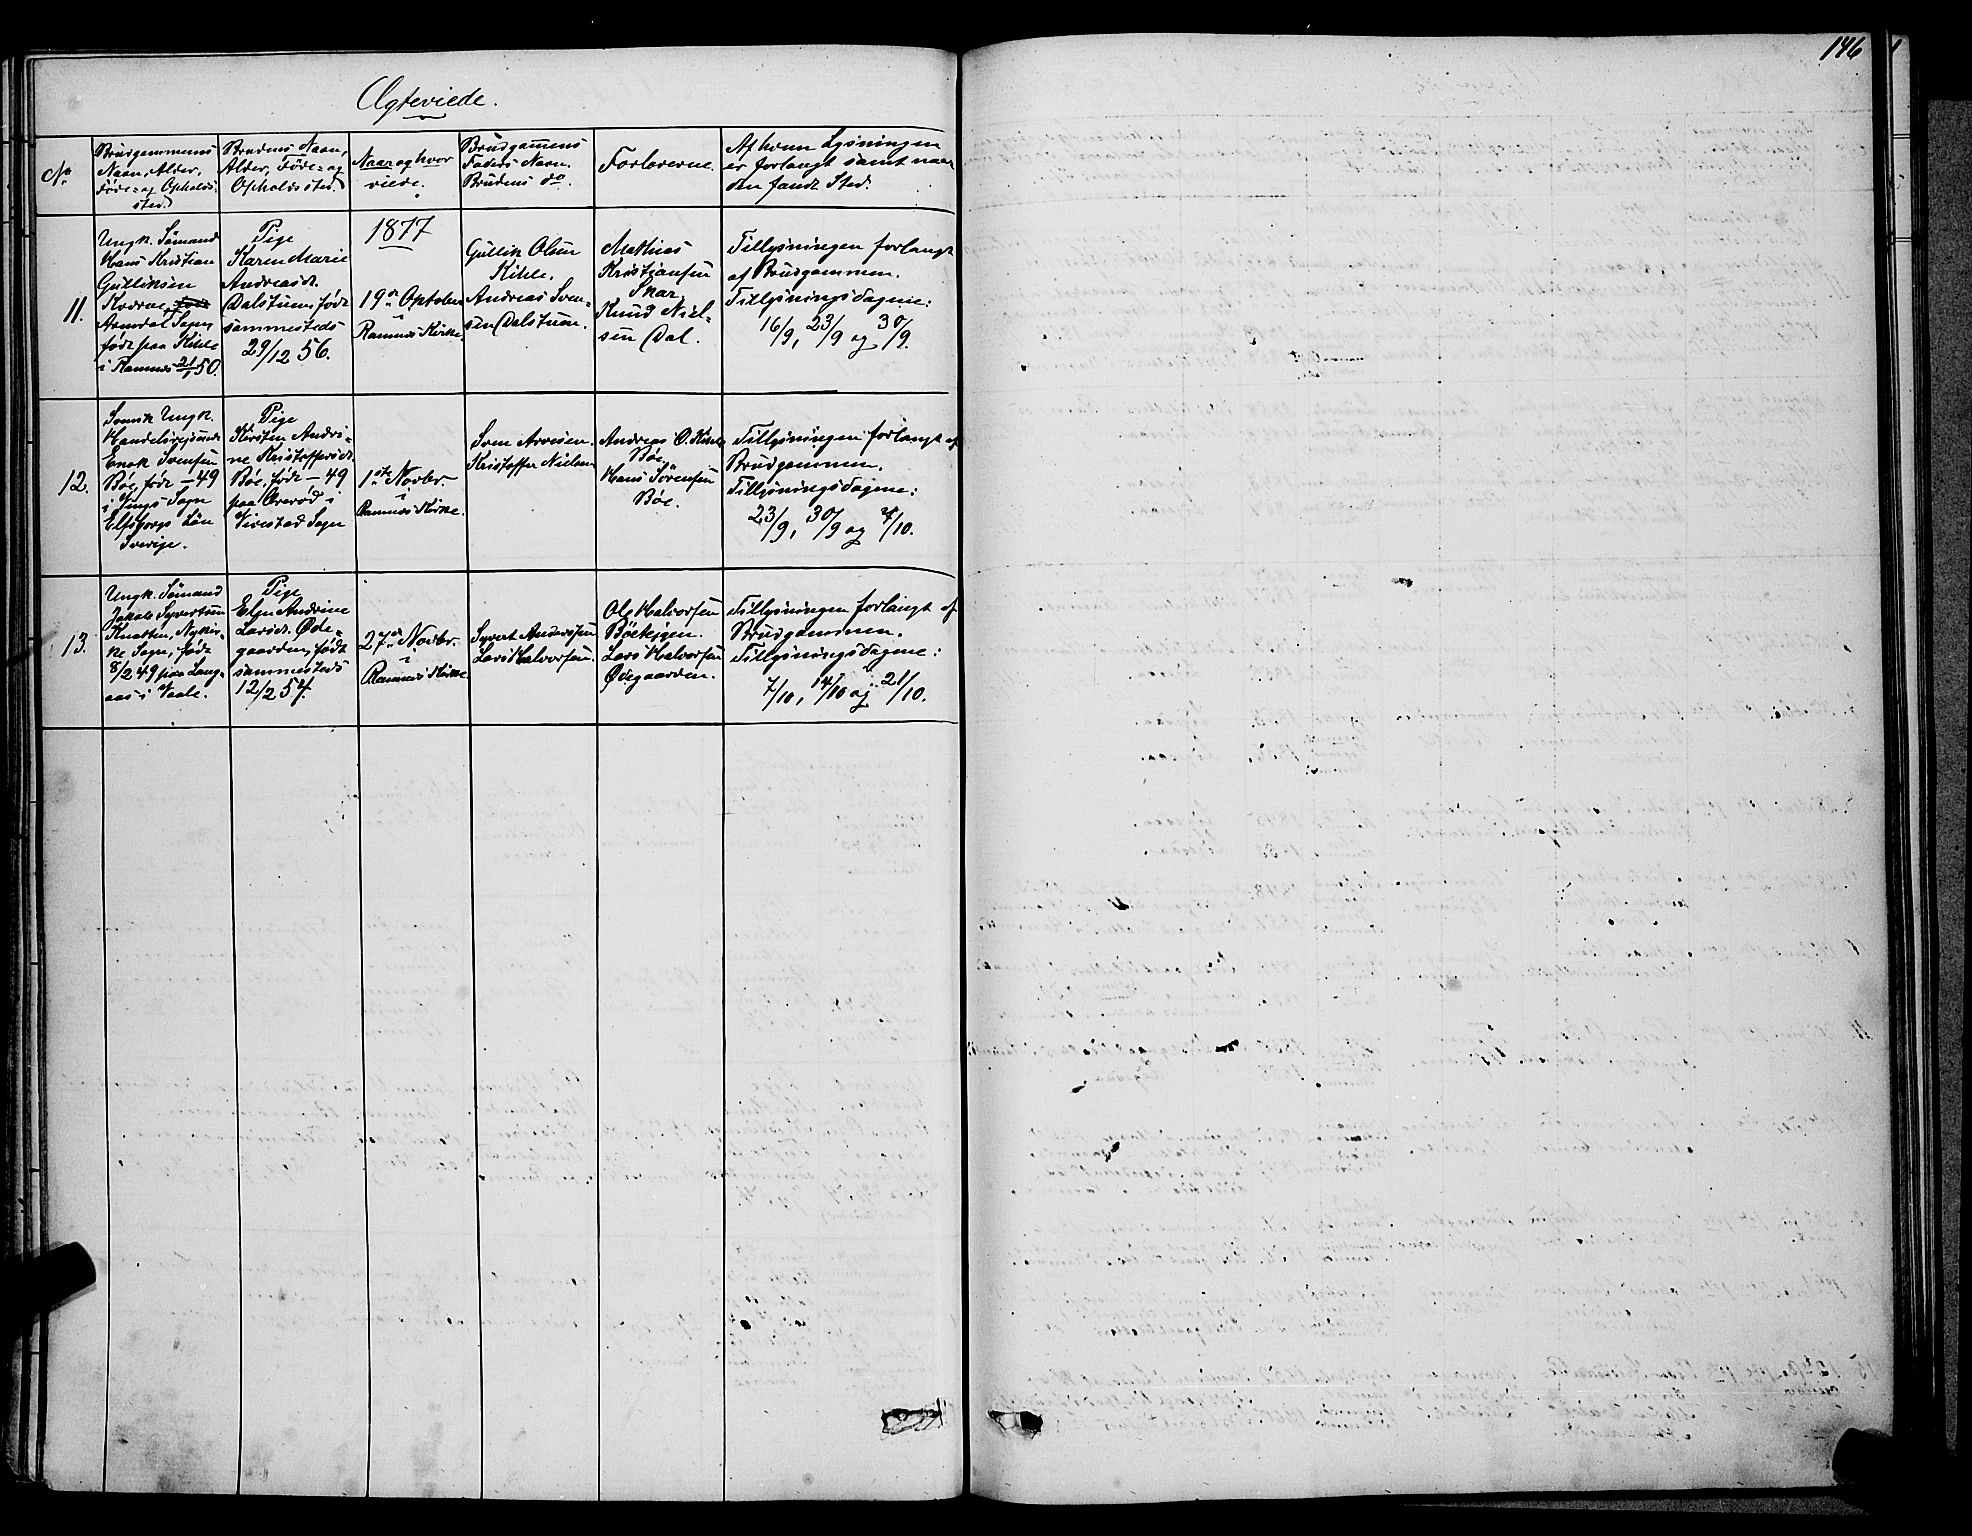 146
Ægteviede.
No
Brudgommens
Navn, Alder,
Føde- og Opholds
sted.
Brudens Navn,
Alder, Føde- og
Opholdssted.
Naar og hvor
viede.
Brudgommens
Faders Navn.
Brudens do.
Forloverne.
Af hvem Lysningen
er forlangt samt naar
den fandt Sted.
1877
11.
Ungk. Sömand
Hans Kristian
Gulliksen
Arendal Sogn,
født paa Kihle
i Ramnes 21/1 50.
Pige
Karen Marie
Andreasdt.
Dalstuen, født
sammesteds
29/12 56.
19de Oktober
i
Ramnes Kirke.
Gullik Olsen
Kihle.
Andreas Sven-
sen Dalstuen.
Mathias
Kristjansen
Skar,
Knud Niel-
sen Dal.
Tillysningen forlangt
af Brudgommen.
Tillysningsdagene:
16/9, 23/9 og 30/9.
12.
Svensk Ungk.
Handelsreisende
Enok Svensen
Böe, født – 49
i Sogn
Elfsborgs Län
Sverige.
Pige
Kirsten Andri-
ne Kristoffersdt.
Böe, født – 49
paa i
Sogn
1ste Novbr.
i
Ramnes Kirke.
Sven Arvesen.
Kristoffer Nielsen
Andreas O. Kihle
Böe,
Hans Sörensen
Böe.
Tillysningen forlangt af
Brudgommen.
Tillysningsdagene:
23/9, 30/9 og 7/10.
13.
Ungk. Sömand
Jakob Syvertsen
Knatten, Nykir-
ke Sogn, født
8/2 49 paa Lang-
aas i Vaale.
Pige
Elen Andrine
Larsdt. Øde-
gaarden, født
sammesteds
12/2 54.
27de Novbr.
i
Ramnes Kirke
Syvert Andersen
Lars Halvorsen.
Ole Halvorsen
Böeteigen.
Lars Halvorsen
Ødegaarden.
Tillysningen forlangt af
Brudgommen.
Tillysningsdagene:
7/10, 14/10 og 21/10.